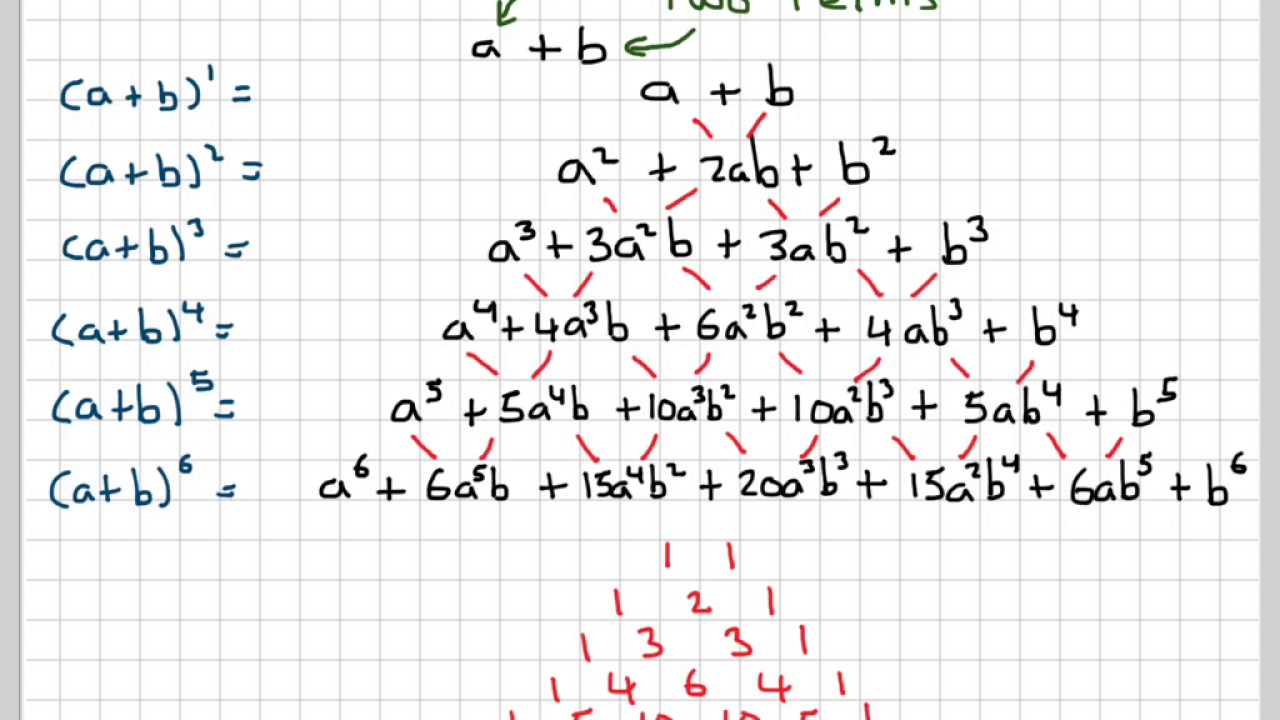 Two Terms
a + b
(a+b)¹ = a + b
(a+b)² = a² + 2ab + b²
(a+b)³ = a³ + 3a²b + 3ab² + b³
(a+b)⁴ = a⁴ + 4a³b + 6a²b² + 4ab³ + b⁴
(a+b)⁵ = a⁵ + 5a⁴b + 10a³b² + 10a²b³ + 5ab⁴ + b⁵
(a+b)⁶ = a⁶ + 6a⁵b + 15a⁴b² + 20a³b³ + 15a²b⁴ + 6ab⁵ + b⁶
1 1
1 2 1
1 3 3 1
1 4 6 4 1
1 5 10 10 5 1